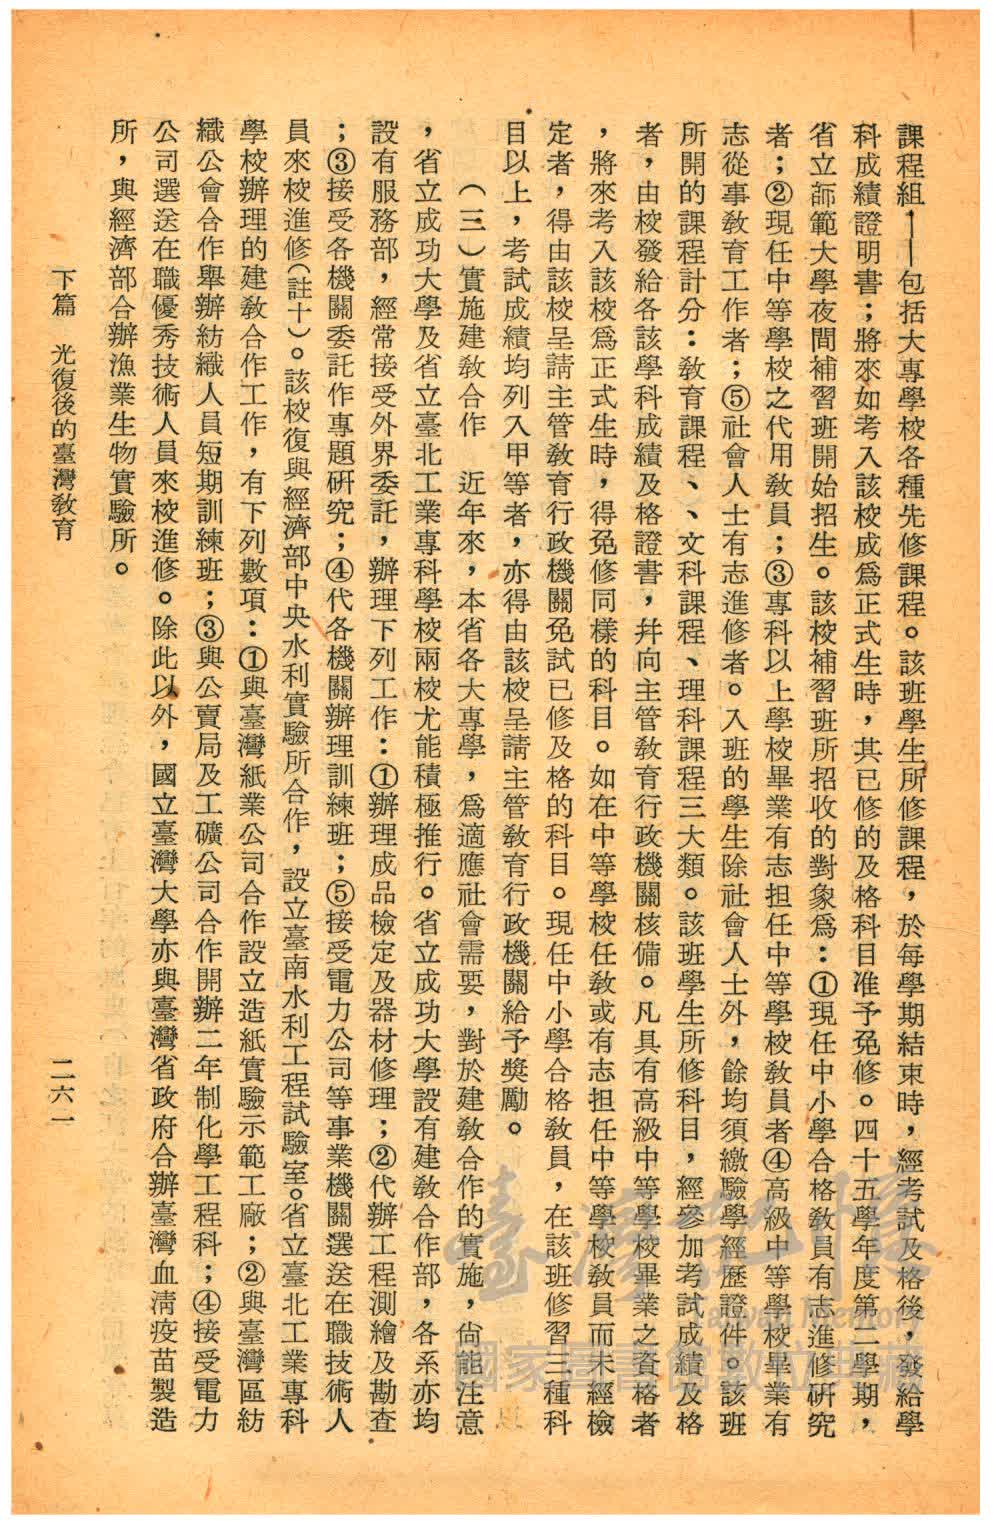 課程組——包括大專學校各種先修課程。該班學生所修課程，於每學期結束時，經考試及格後，發給學
科成績證明書；將來如考入該校成爲正式生時，其已修的及格科目准予免修。四十五學年度第二學期，
省立師範大學夜間補習班開始招生。該校補習班所招收的對象爲：①現任中小學合格教員有志進修研究
者；②現任中等學校之代用教員；③專科以上學校畢業有志担任中等學校教員者④高級中等學校畢業有
志從事教育工作者；⑤社會人士有志進修者。入班的學生除社會人士外，餘均須繳驗學經歷證件。該班
所開的課程計分：教育課程、、文科課程、理科課程三大類。該班學生所修科目，經參加考試成績及格
者，由校發給各該學科成績及格證書，幷向主管教育行政機關核備。凡具有高級中等學校畢業之資格者
，將來考入該校爲正式生時，得免修同樣的科目。如在中等學校任教或有志担任中等學校教員而未經檢
定者，得由該校呈請主管教育行政機關免試已修及格的科目。現任中小學合格教員，在該班修習三種科
目以上，考試成績均列入甲等者，亦得由該校呈請主管教育行政機關給予獎勵。
（三）實施建教合作　近年來，本省各大專學，爲適應社會需要，對於建教合作的實施，尙能注意
，省立成功大學及省立臺北工業專科學校兩校尤能積極推行。省立成功大學設有建教合作部，各系亦均
設有服務部，經常接受外界委託，辦理下列工作：①辦理成品檢定及器材修理；②代辦工程測繪及勘查
；③接受各機關委託作專題研究；④代各機關辦理訓練班；⑤接受電力公司等事業機關選送在職技術人
員來校進修（註十）。該校復與經濟部中央水利實驗所合作，設立臺南水利工程試驗室。省立臺北工業專科
學校辦理的建教合作工作，有下列數項：①與臺灣紙業公司合作設立造紙實驗示範工廠；②與臺灣區紡
織公會合作舉辦紡織人員短期訓練班；③與公賣局及工礦公司合作開辦二年制化學工程科；④接受電力
公司選送在職優秀技術人員來校進修。除此以外，國立臺灣大學亦與臺灣省政府合辦臺灣血淸疫苗製造
所，與經濟部合辦漁業生物實驗所。
下篇　光復後的臺灣教育　二六一
臺灣記憶
Taiwan Memory
國家圖書館數位典藏